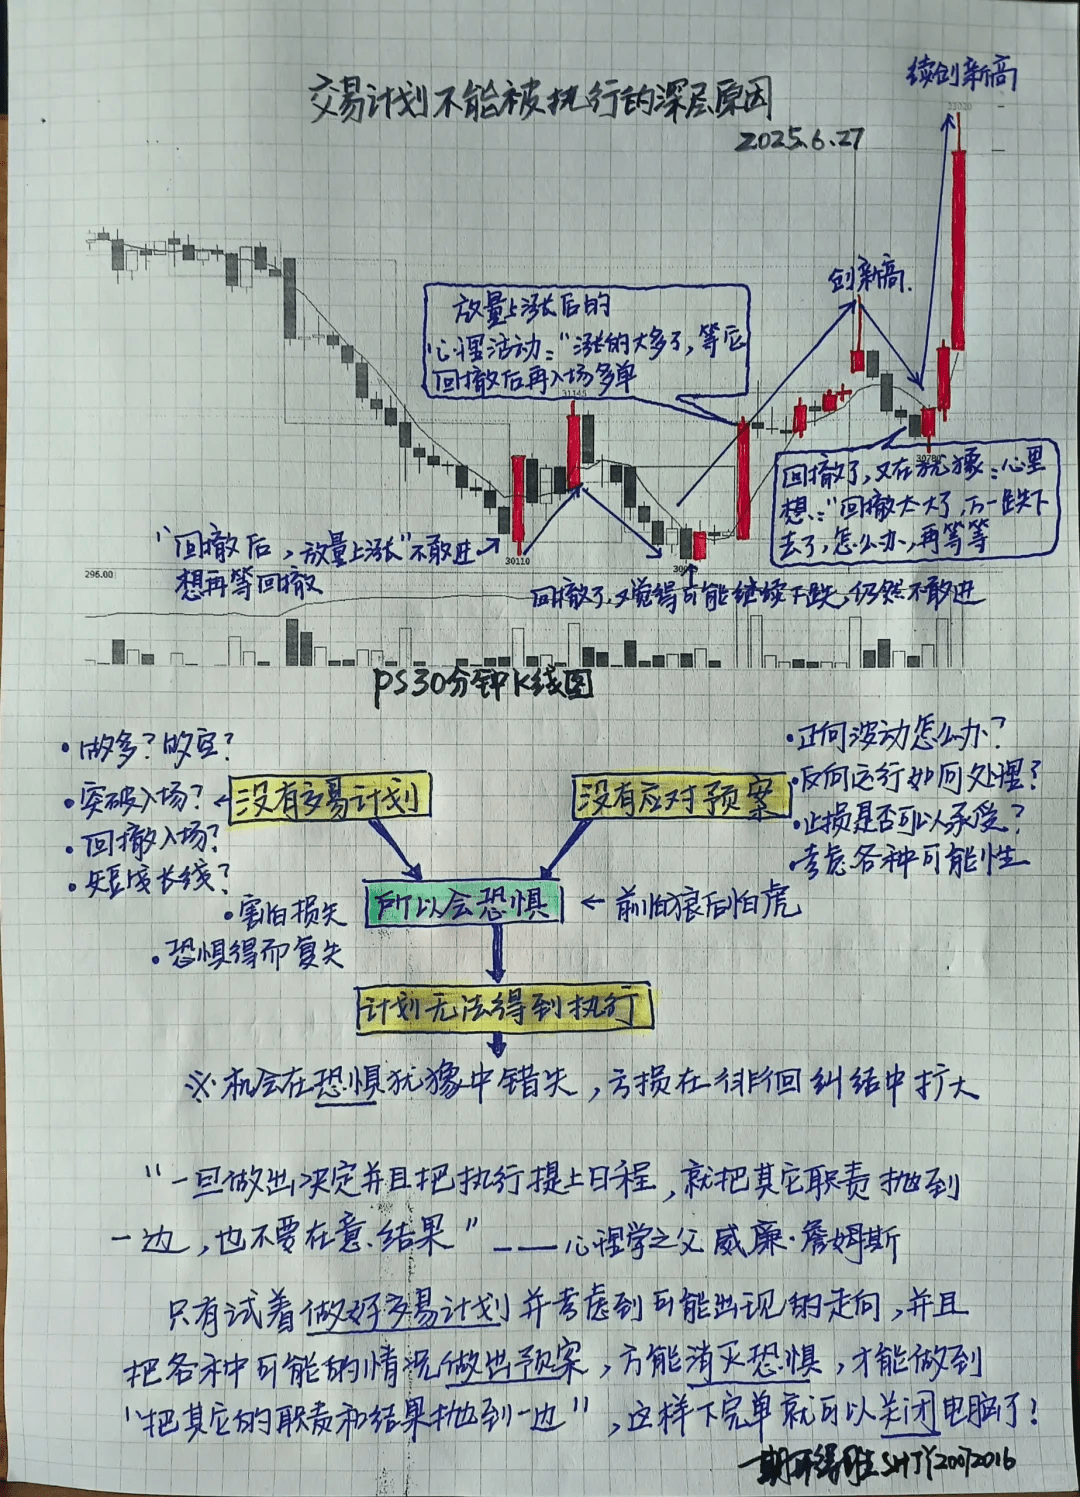 续创新高
交易计划不能被执行的深层原因
2025.6.27
创新高.
放量上涨后的
心理活动:“涨的太多了,等后
回撤后再入场多单
31145
回撤了,又在犹豫:心里
想:“回撤太大了,万一跌下
去了,怎么办,再等等
“回撤后,放量上涨”不敢进
想再等回撤
30110
295.00
回撤了,又觉得可能继续下跌,仍然不敢进
PS30分钟K线图
·做多?做空?
·突破入场?
·回撤入场?
·短或长线?
没有交易计划
没有应对预案
·正向波动怎么办?
·反向运行如何处理?
·止损是否可以承受?
·考虑各种可能性
·害怕损失
·恐惧得而复失
所以会恐惧
←前怕狼后怕虎
计划无法得到执行
※机会在恐惧犹豫中错失,亏损在徘徊纠结中扩大
“一旦做出决定并且把执行提上日程,就把其它职责抛到
一边,也不要在意.结果”——心理学之父 威廉·詹姆斯
只有试着做好交易计划并考虑到可能出现的走向,并且
把各种可能的情况做出预案,方能消灭恐惧,才能做到
“把其它的职责和结果抛到一边”,这样下完单就可以关闭电脑了!
SHJY20072016